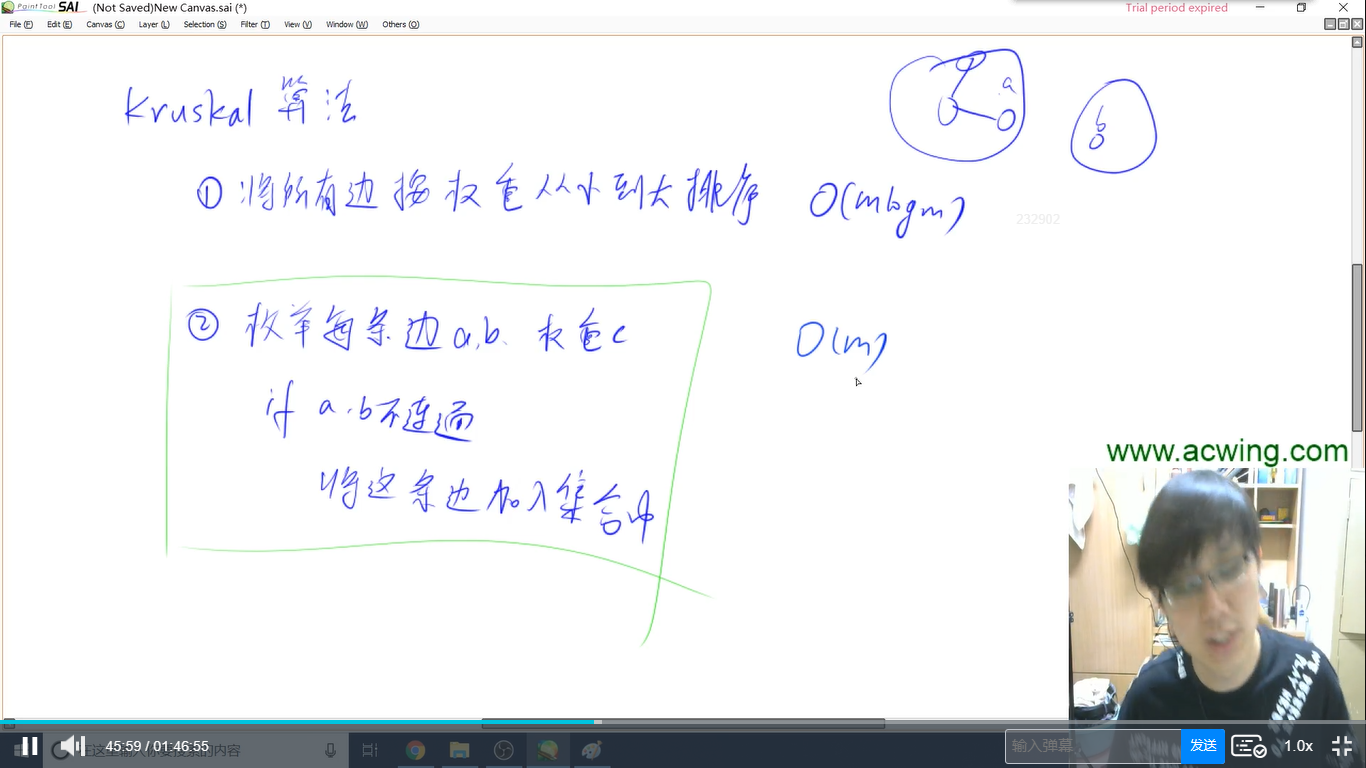 PaintTool SAI (Not Saved)New Canvas.sai (*) Trial period expired
File (F) Edit (E) Canvas (C) Layer (L) Selection (S) Filter (T) View (V) Window (W) Others (O)
Kruskal 算法
a
b
① 将所有边按权重从小到大排序 O(mlogm)
232902
② 枚举每条边a,b 权重c O(m)
if a,b不连通
将这条边加入集合中
www.acwing.com
45:59 / 01:46:55 在这里输入你要搜索的内容 输入弹幕 发送 1.0x